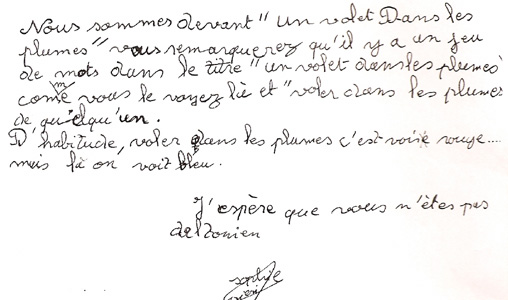 Nous sommes devant "un volet Dans les
plumes" vous remarquerez qu'il y a un jeu
de mots dans le titre "un volet dans les plumes"
comme vous le voyez lié et "voler dans les plumes
de quelqu'un.
D'habitude, voler dans les plumes c'est voire rouge....
mais là on voit bleu.
J'espère que vous n'êtes pas
daltonien